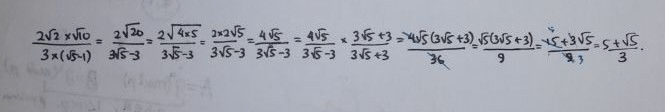 \frac{2\sqrt{2} \times \sqrt{10}}{3 \times (\sqrt{5}-1)} = \frac{2\sqrt{20}}{3\sqrt{5}-3} = \frac{2\sqrt{4 \times 5}}{3\sqrt{5}-3} = \frac{2 \times 2\sqrt{5}}{3\sqrt{5}-3} = \frac{4\sqrt{5}}{3\sqrt{5}-3} = \frac{4\sqrt{5}}{3\sqrt{5}-3} \times \frac{3\sqrt{5}+3}{3\sqrt{5}+3} = \frac{4\sqrt{5}(3\sqrt{5}+3)}{36} = \frac{\sqrt{5}(3\sqrt{5}+3)}{9} = \frac{15+3\sqrt{5}}{9} = \frac{5+\sqrt{5}}{3}.